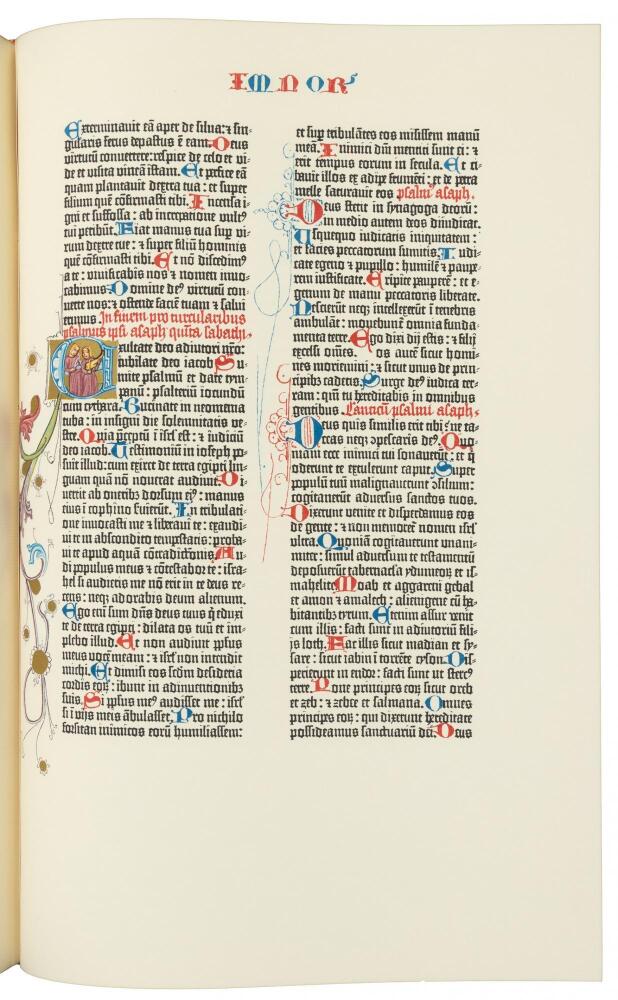 IMNOR'
Exterminavit eā aper de silua: ⁊ sin-
gularis ferus depastus ē eam. Deus
virtutū convertere: respice de celo et vi-
de et visita vineā istam. Et perfice eā
quam plantavit dextra tua: et super
filium quē cōfirmasti tibi. Incensa i-
gni et suffossa: ab increpatione vult9
tui peribūt. Fiat manus tua sup vi-
rum dextre tue: ⁊ super filiū hominis
quē cōfirmasti tibi. Et nō discedim9
a te: vivificabis nos ⁊ nomen tuū invo-
cabimus. Domine de9 virtutū con-
verte nos: ⁊ ostende faciē tuam ⁊ salvi
erimus. In finem pro torcularibus
psalmus ipsi asaph quīta sabbati.
Exultate deo adiutori nr̄o:
iubilate deo iacob. Su-
mite psalmū et date tym-
panū: psalteriū iocundū
cum cythara. Buccinate in neomenia
tuba: in insigni die solennitatis ve-
stre. Quia p̄ceptū ī isrl est: ⁊ iudiciū
deo iacob. Testimoniū in ioseph po-
suit illud: cum exiret de terra egipti lin-
guam quā nō noverat audivit. Di-
vertit ab oneribz dorsum ei9: manus
eius ī cophino servierūt. In tribulati-
one invocasti me ⁊ liberavi te: exaudi-
vi te in abscondito tempestatis: probа-
vi te apud aquā cōtradictionis. Au-
di populus meus ⁊ cōtestabor te: isra-
hel si audieris me nō erit in te deus re-
cens: neq; adorabis deum alienum.
Ego enī sum dn̄s deus tuus q̄ eduxi
te de terra egipti: dilata os tuū et im-
plebo illud. Et non audivit ppl̄us
meus vocē meam: ⁊ isrl non intendit
michi. Et dimisi eos scdm desideria
cordis eorꝫ: ibunt in adinventionibz
suis. Si ppl̄us me9 audisset me: isrl
si ī viis meis ābulasset. Pro nichilo
forsitan inimicos eorū humiliassem:
et sup tribulātes eos misissem manū
meā. Inimici dn̄i mentiti sunt ei: ⁊
erit tempus eorum in secula. Et ci-
bavit illos ex adipe frumēti: et de petra
melle saturavit eos. psalm9 asaph.
Deus stetit in synagoga deorū:
in medio autem deos diiudicat.
Usquequo iudicatis iniquitatem:
et facies peccatorum sumitis. Iudi-
cate egeno ⁊ pupillo: humilē ⁊ paupe-
rem iustificate. Eripite pauperē: et e-
genum de manu peccatoris liberate.
Nescierūt neq; intellexerūt ī tenebris
ambulāt: movebunt omnia funda-
menta terre. Ego dixi dij estis: ⁊ filij
excelsi om̄es. Vos autē sicut homi-
nes moriemini: ⁊ sicut unus de prin-
cipibs cadetis. Surge de9 iudica ter-
ram: qm̄ tu hereditabis in omnibus
gentibus. Canticū psalmi asaph.
Deus quis similis erit tibi: ne ta-
ceas neq; ɔpescaris de9. Quo-
niam ecce inimici tui sonaverūt: et q̄
oderunt te extulerunt caput. Super
populū tuū malignaverunt ɔsilium:
cogitaverūt adversus sanctos tuos.
Dixerunt venite et disperdamus eos
de gente: ⁊ non memoret᷑ nomen isrl
ultra. Quoniā cogitaverunt unani-
miter: simul adversum te testamentū
deposuerūt tabernacl̄a ydumeorꝫ et is-
mahelite. Moab et aggareni gebal
et amon ⁊ amalech: alienigene cū ha-
bitantibz tyrum. Etenim assur venit
cum illis: facti sunt in adiutoriū fili-
js loth. Fac illis sicut madian et sy-
sare: sicut iabin ī torrēte cyson. Dis-
perierunt in endor: facti sunt ut sterc9
terre. Pone principes eorꝫ sicut oreb
et zeb: ⁊ zebee et salmana. Omnes
principes eorꝫ: qui dixerunt hereditate
possideamus sanctuariū dei. Deus